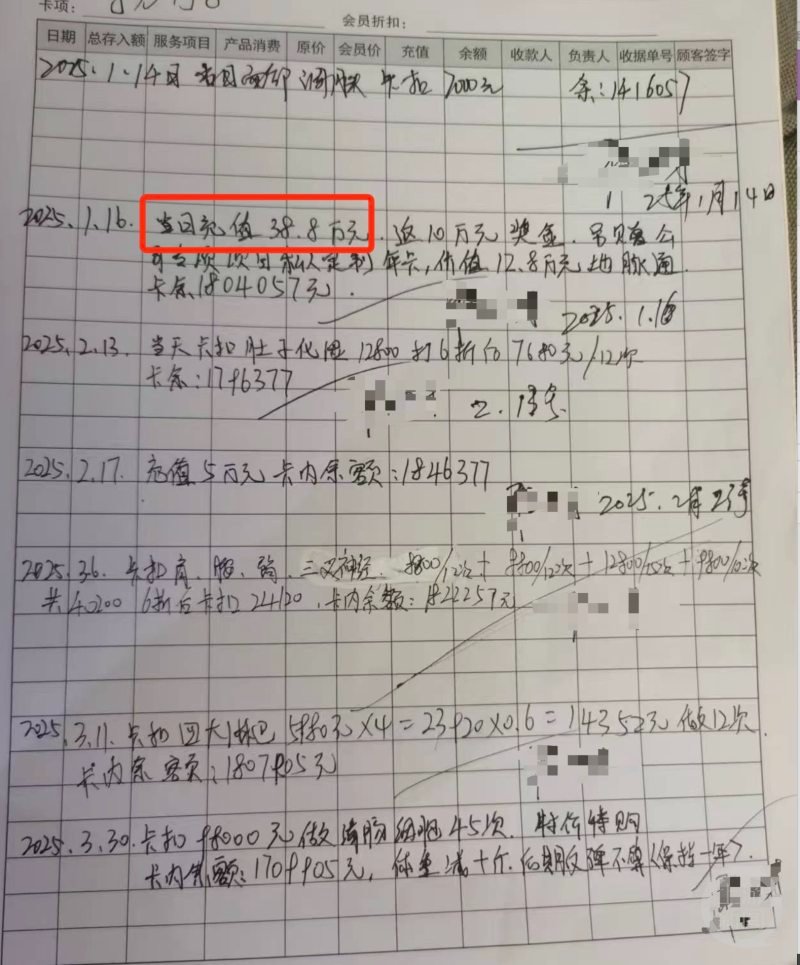 卡项：
会员折扣：
日期 总存入额 服务项目 产品消费 原价 会员价 充值 余额 收款人 负责人 收据单号 顾客签字
2025.1.14日 卡扣 7000元 余：1416057
25年1月14日
2025.1.16. 当日充值 38.8万元. 返10万元奖金.
私人定制年卡, 价值12.8万元 地脉通.
卡余1804057元.
2025.1.16
2025.2.13. 当天卡扣肚子化湿 12800 打6折后 7680元/12次
卡余：1796377
2.13号
2025.2.17. 充值5万元 卡内余额：1846377
2025.2月
2025.3.6. 卡扣肩、腸、三叉神经. 9800/12次 + 9800/12次 + 12800/15次 +
共40200 6折后卡扣24120. 卡内余额：1822257元
2025.3.11. 卡扣四大淋巴 5980元×4=23920×0.6=14352元 做12次.
卡内余额：1807905元
2025.3.30. 卡扣98000元做 45次. 特价特购
卡内余额：1709905元, 体重减十斤. 后期反弹不算(保持一年).